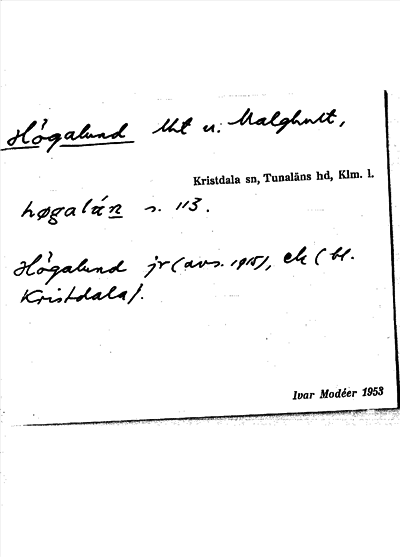 Högalund lht u. Malghult,
Kristdala sn, Tunaläns hd, Klm. l.
høgalán s. 113.
Högalund jr (avs. 1915), ek (bl.
Kristdala).
Ivar Modéer 1953